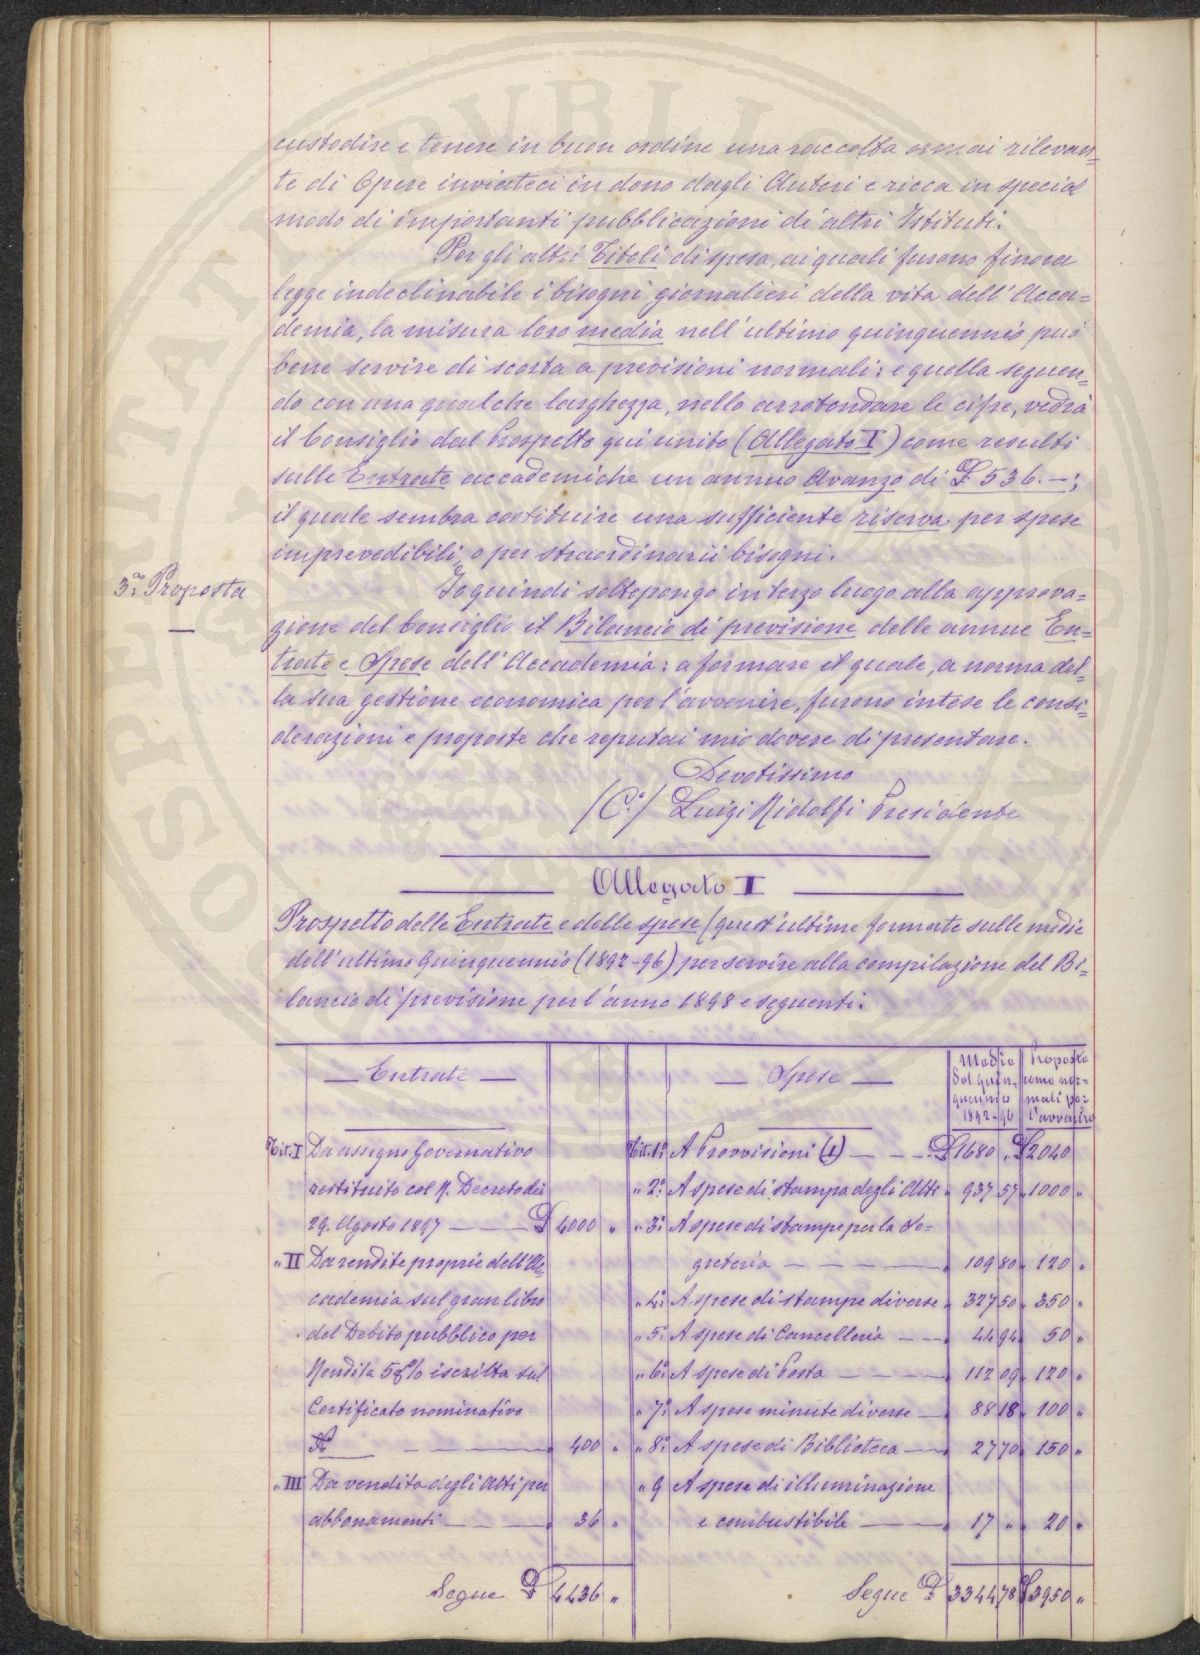 custodire e tenere in buon ordine una raccolta ormai rilevan=
te di Opere inviateci in dono dagli Autori e ricca in special
modo di importanti pubblicazioni di altri Istituti.
Per gli altri Titoli di spesa, ai quali furono finora
legge indeclinabile i bisogni giornalieri della vita dell'Acca=
demia, la misura loro media nell'ultimo quinquennio può
bene servire di scorta a previsioni normali: e quella seguen=
do con una qualche larghezza, nello arrotondare le cifre, vedrà
il Consiglio dal Prospetto qui unito (Allegato I) come resulti
sulle Entrate accademiche un annuo Avanzo di £ 536.—;
il quale sembra costituire una sufficiente riserva per spese
imprevedibili, o per straordinarii bisogni.
3.a Proposta
Io quindi sottopongo in terzo luogo alla approva=
zione del Consiglio il Bilancio di previsione delle annue En=
trate e Spese dell'Accademia: a formare il quale, a norma del=
la sua gestione economica per l'avvenire, furono intese le consi=
derazioni e proposte che reputai mio dovere di presentare.
Devotissimo
(C.o) Luigi Ridolfi Presidente
Allegato I
Prospetto delle Entrate e delle spese (quest'ultime formate sulle medie
dell'ultimo Quinquennio (1892-96) per servire alla compilazione del Bi=
lancio di previsione per l'anno 1898 e seguenti.
Entrate
Tit. I Da assegno Governativo
restituito col R. Decreto dei
29. Agosto 1897 — £ 4000 "
" II Da rendite proprie dell'Ac=
cademia sul gran libro
del Debito pubblico per
Rendita 5% iscritta sul
Certificato nominativo
N. — " 400 "
" III Da vendita degli Atti per
abbonamenti — " 36 "
Segue £ 4436 "
Spese Media del quin=quennio 1892-96 Proposte come nor=mali per l'avvenire
Tit. 1.o A Provvisioni (1) — £ 1680 " £ 2040
" 2.o A spese di stampa degli Atti " 937 57 " 1000 "
" 3.o A spese di stampe per la Se=
greteria — " 109 80 " 120 "
" 4.o A spese di stampe diverse " 327 50 " 350 "
" 5.o A spese di Cancelleria — " 44 94 " 50 "
" 6.o A spese di Posta — " 112 09 " 120 "
" 7.o A spese minute diverse — " 88 18 " 100 "
" 8.o A spese di Biblioteca — " 27 70 " 150 "
" 9 A spese di illuminazione
e combustibile — " 17 " " 20 "
Segue £ 3344 78 £ 3950 "